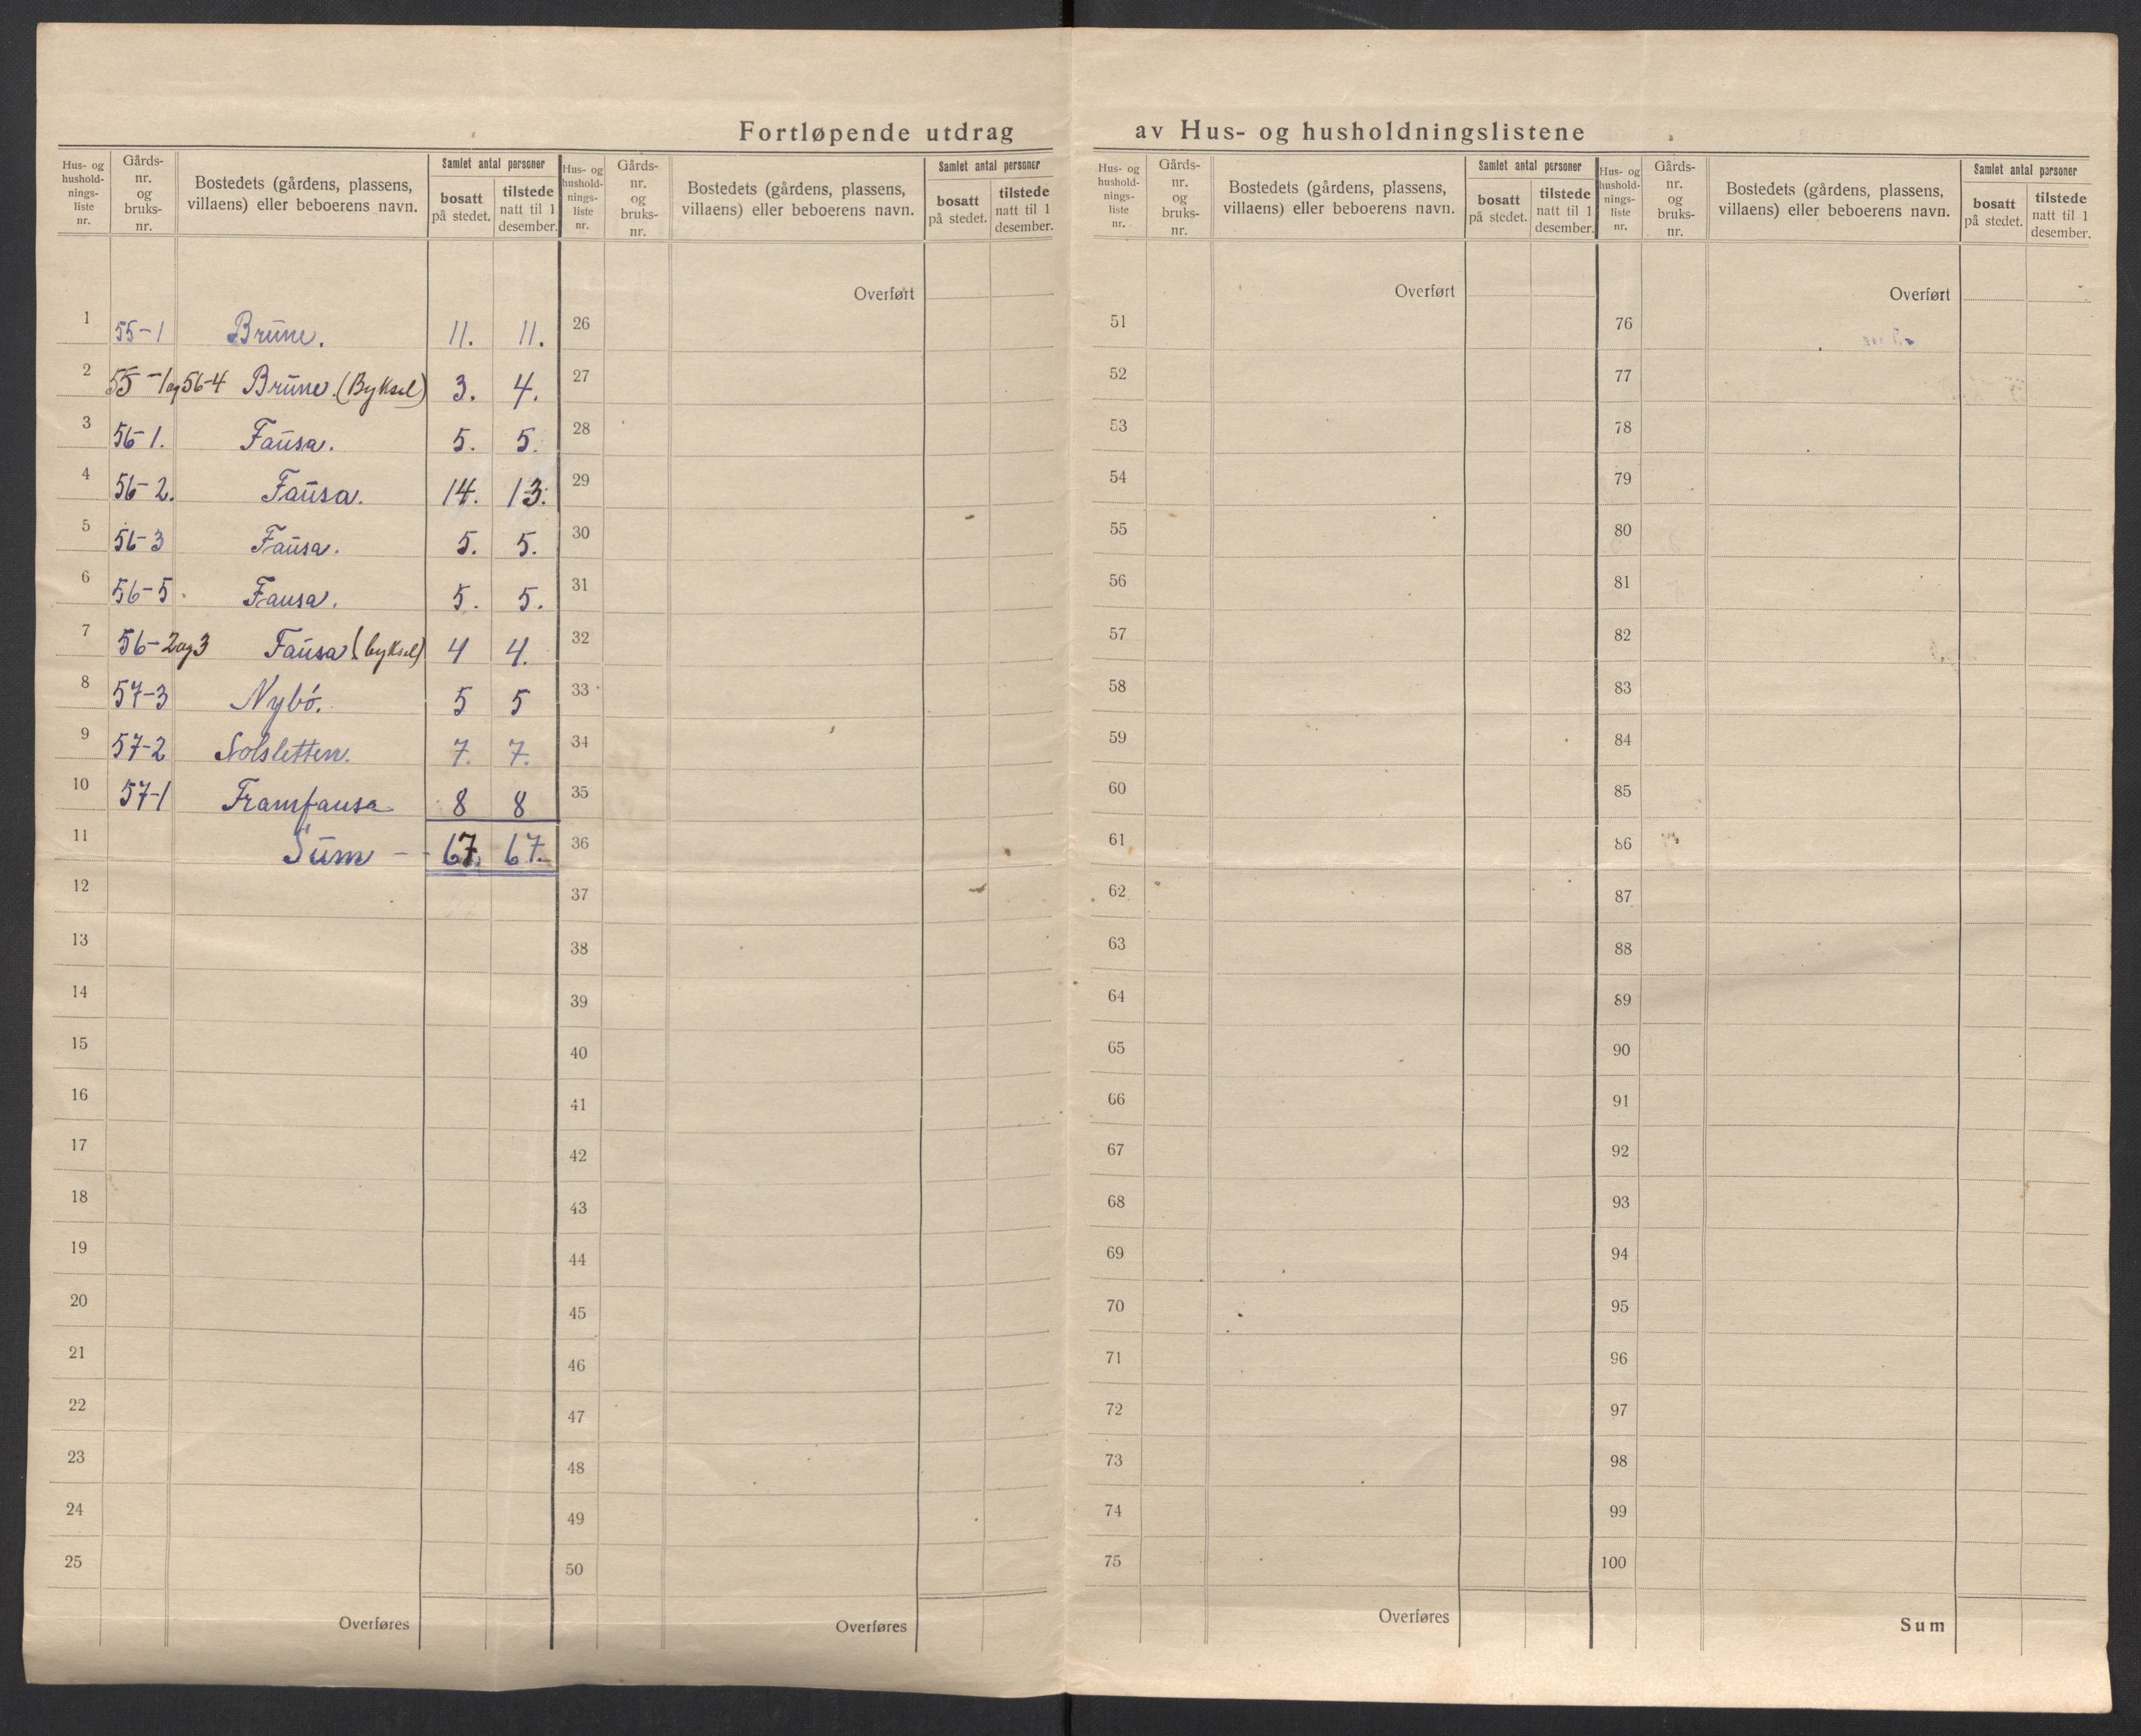 Fortløpende utdrag av Hus- og husholdningslistene
Hus- og hushold-nings-liste nr.
Gårds-nr. og bruks-nr.
Bostedets (gårdens, plassens, villaens) eller beboerens navn.
Samlet antal personer
bosatt på stedet.
tilstede natt til 1 desember.
1 55-1 Brune. 11. 11.
2 55-1 og 56-4 Brune. (Byksel) 3. 4.
3 56-1. Fausa. 5. 5.
4 56-2. Fausa. 14. 13.
5 56-3 Fausa. 5. 5.
6 56-5. Fausa. 5. 5.
7 56-2 og 3 Fausa (byksel) 4 4.
8 57-3 Nybö. 5 5
9 57-2 Solsletten. 7. 7.
10 57-1 Framfausa 8 8
11 Sum - - 67. 67.
12
13
14
15
16
17
18
19
20
21
22
23
24
25
Overføres
Hus- og hushold-nings-liste nr.
Gårds-nr. og bruks-nr.
Bostedets (gårdens, plassens, villaens) eller beboerens navn.
Samlet antal personer
bosatt på stedet.
tilstede natt til 1 desember.
Overført
26
27
28
29
30
31
32
33
34
35
36
37
38
39
40
41
42
43
44
45
46
47
48
49
50
Overføres
Hus- og hushold-nings-liste nr.
Gårds-nr. og bruks-nr.
Bostedets (gårdens, plassens, villaens) eller beboerens navn.
Samlet antal personer
bosatt på stedet.
tilstede natt til 1 desember.
Overført
51
52
53
54
55
56
57
58
59
60
61
62
63
64
65
66
67
68
69
70
71
72
73
74
75
Overføres
Hus- og hushold-nings-liste nr.
Gårds-nr. og bruks-nr.
Bostedets (gårdens, plassens, villaens) eller beboerens navn.
Samlet antal personer
bosatt på stedet.
tilstede natt til 1 desember.
Overført
76
77
78
79
80
81
82
83
84
85
86
87
88
89
90
91
92
93
94
95
96
97
98
99
100
Sum